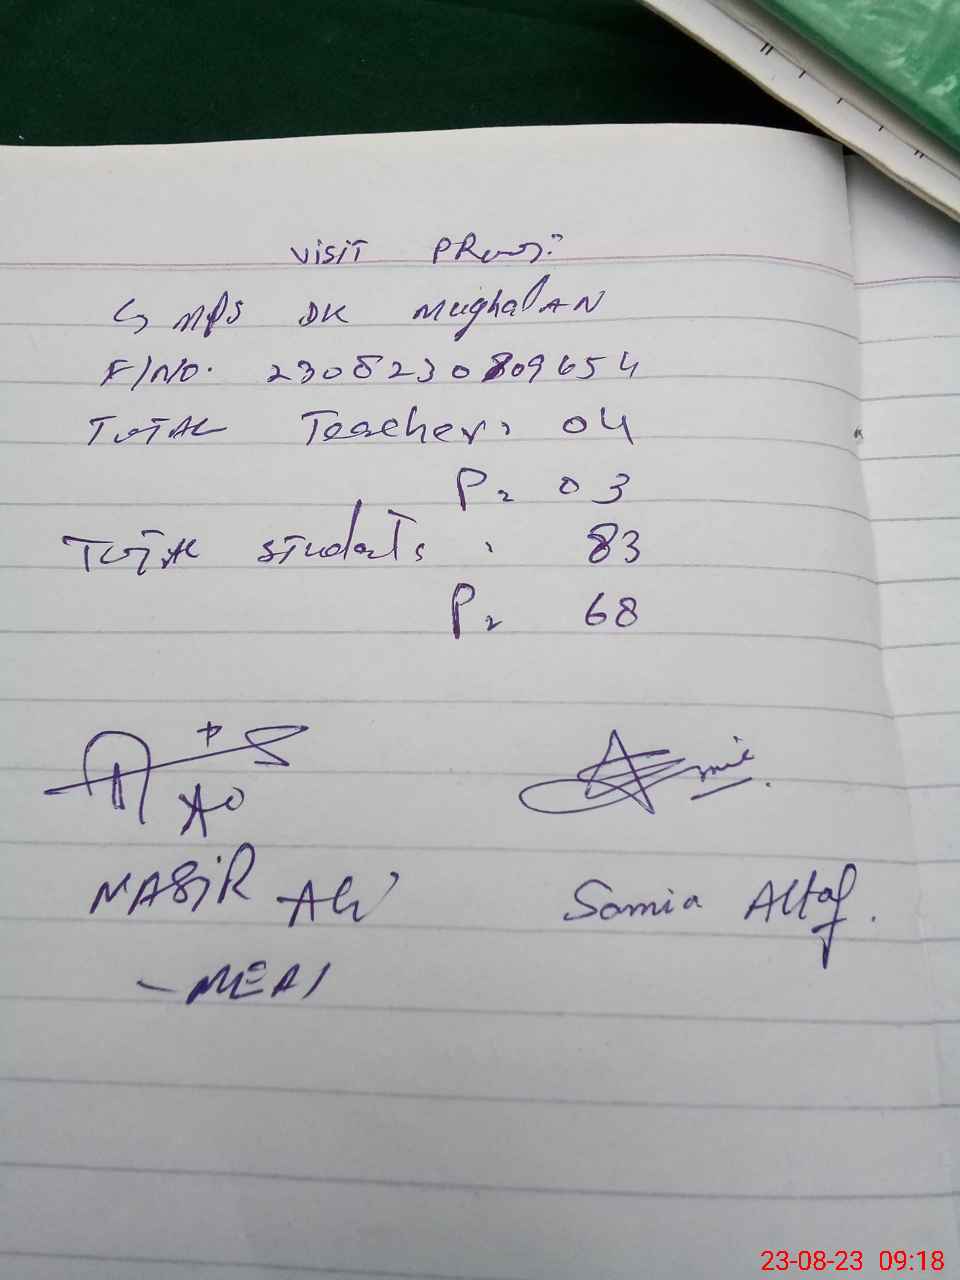 Visit Proof:
GMPS DK MughalAN
F/NO. 2308230809654
TOTAL Teacher: 04
P= 03
TOTAL students: 83
P= 68
AO
NASIR Ali Samia Altaf.
-MEA/
23-08-23 09:18